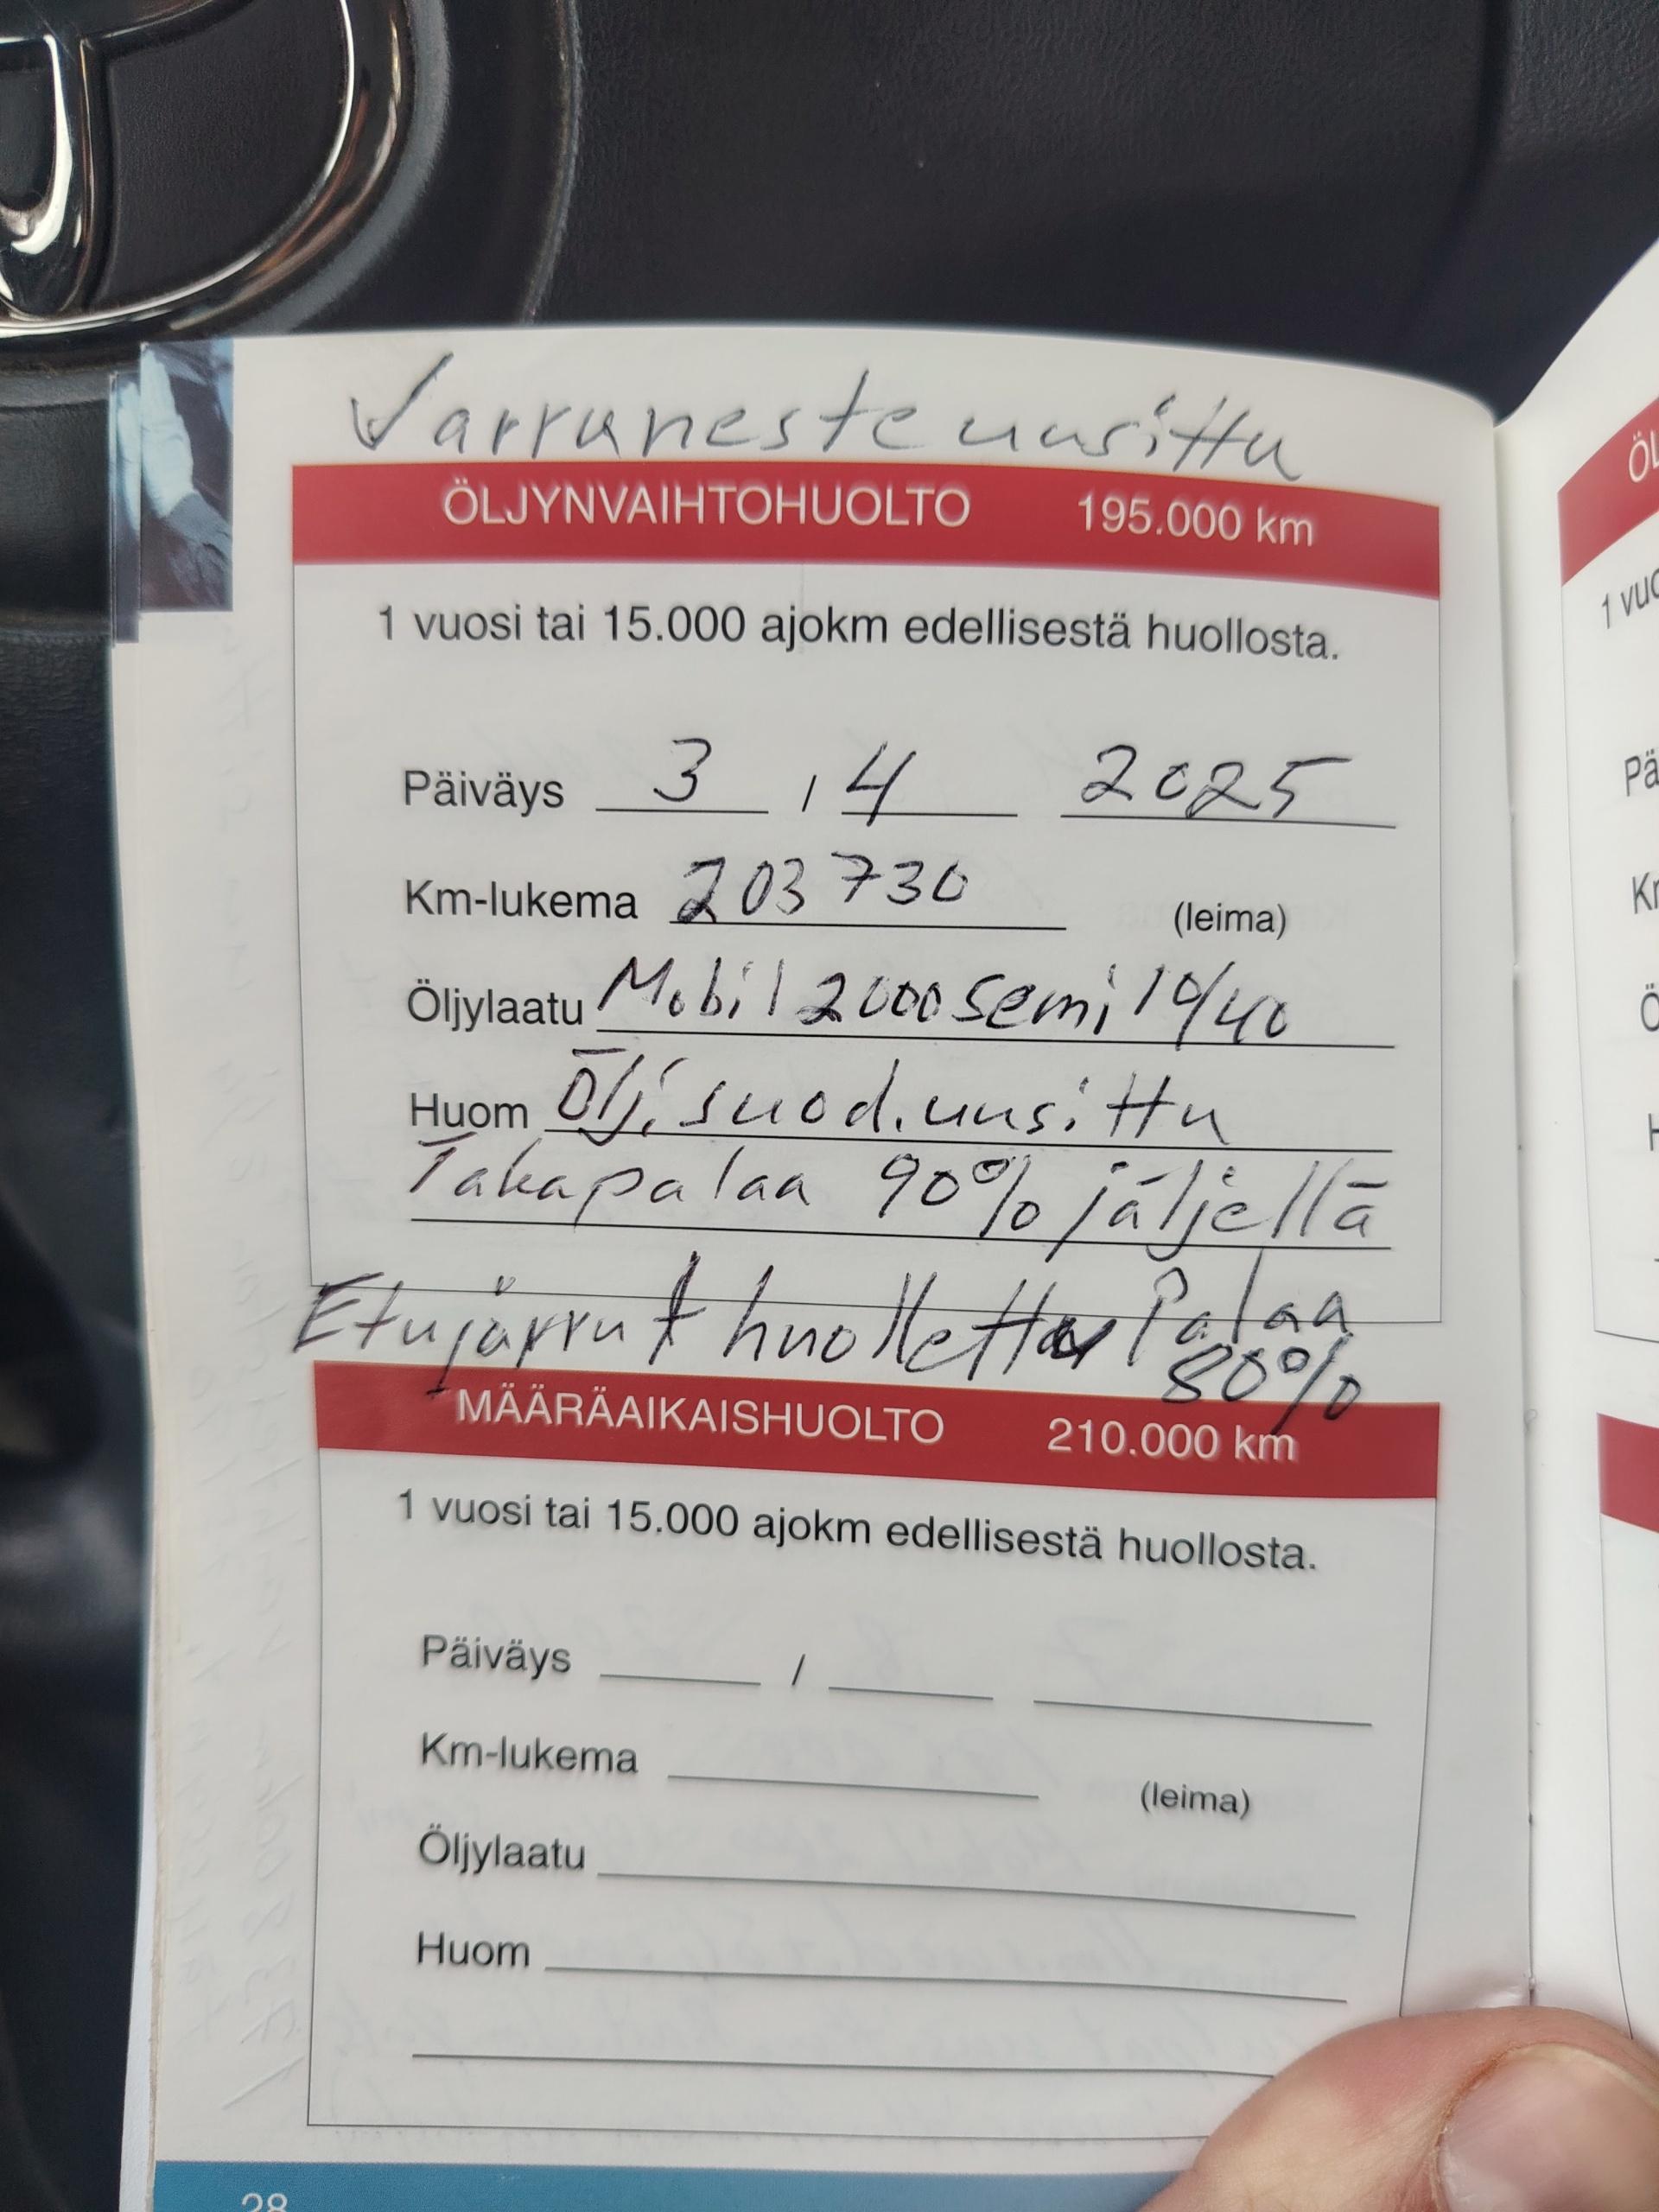 Jarruneste uusittu
ÖLJYNVAIHTOHUOLTO 195.000 km
1 vuosi tai 15.000 ajokm edellisestä huollosta.
Päiväys 3 / 4 2025
Km-lukema 203 730 (leima)
Öljylaatu Mobil 2000 semi 10/40
Huom Ölj. suod. uusittu
Takapalaa 90% jäljellä
Etujarrut huollettu Palaa
80%
MÄÄRÄAIKAISHUOLTO 210.000 km
1 vuosi tai 15.000 ajokm edellisestä huollosta.
Päiväys /
Km-lukema (leima)
Öljylaatu
Huom
28
ÖL
1 vuo
Pä